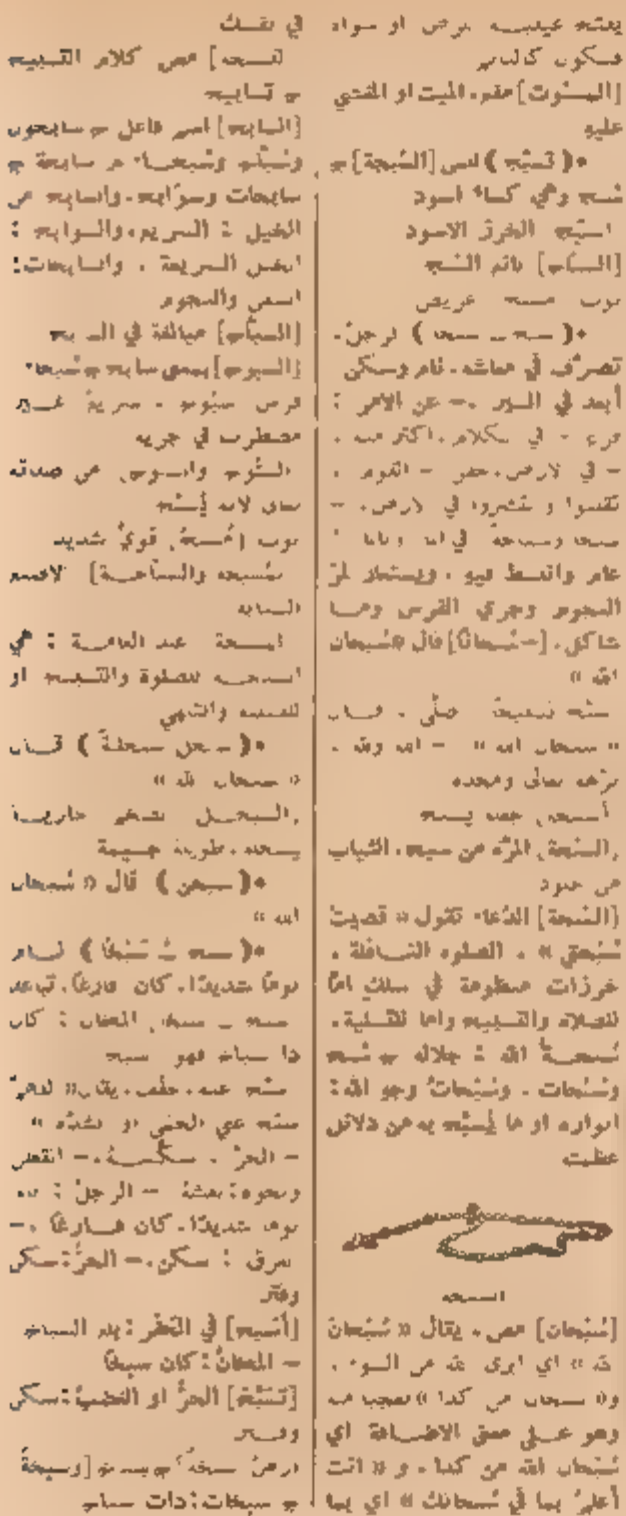 يفتح عينيه مرض او سواد
فسكون كالنائم
[المسبوت] مفع. الميت او المغشي
عليه
*( تسبّج ) لبس [السُبجة] ج
سُبج وهي كساء اسود
السَبَج الخرز الاسود
[السبّاج] بائع السَبَج
ثوب مسبّج عريض
*( سبح ـَ سبحا ) الرجلُ.
تصرّف في معاشه. نام وسكن
أبعد في السير .– عن الامر :
فرغ – في الكلام. اكثر منه .
– في الارض. حفر – القوم .
تقلبوا وانتشروا في الارض. –
سبحا وسباحة في الماء وبالماء :
عام وانبسط فيه . ويستعار لمرّ
النجوم وجري الفرس وما
شاكل. [– سُبحانًا] قال «سُبحان
الله »
سبّح تسبيحًا صلّى . قال
« سبحان الله » – الله ولله .
نزّهه تعالى ومجده
أسبحه، جعله يسبح
السَبْحة، المرّة من سبح. الثياب
من جلود
[السُبحة] الدُعاء تقول « قضيتُ
سُبحتي » . الصلوة النافلة .
خرزات منظومة في سلك امّا
للصلاة والتسبيح واما للتسلية.
سُبحةُ الله : جلاله ج سُبح
وسُبُحات . وسُبُحاتُ وجه الله :
انواره او ما يُسبَّح به من دلائل
عظمته
السبحة
[سُبْحان] مص. يقال « سُبْحانَ
الله » اي ابرئ الله من السوء .
و« سبحان من كذا » تعجب منه
وهو على معنى الاضافة اي
سُبْحان الله من كذا . و « انت
أعلمُ بما في سُبحانك » اي بما
في نفسك
التسبيحة] مص كلام التسبيح
ج تسابيح
[السابح] اسم فاعل ج سابحون
وسُبَّاح وسُبَحاء م سابحة ج
سابحات وسوابح. والسابح من
الخيل : السريع. والسوابح :
الخيل السريعة . والسابحات:
السفن والنجوم
[السبّاح] مبالغة في السابح
[السبوح] بمعنى سابح ج سُبَحاء
فرس سبّوح . سريعٌ غير
مضطرب في جريه
السُبّوح والسَبّوح، من صفاته
تعالى لانه يُسبَّح
ثوب [مُسبَّح، قويٌّ شديد
المُسبِّحة والسبّاحة] الاصبع
السبابة
المسبحة عند العامة : هي
السبحة للصلوة والتسبيح او
للتسلية والتلهي
*( سبحل سبحلةً ) قال
« سبحان الله »
السبحل الضخم جارية
سبحلة. طويلة جسيمة
*( سبحن ) قال « سُبحان
الله »
*( سبخ ـُ سَبْخًا ) نام
نومًا شديدًا. كان فارغًا. تباعد
سبخ ـَ سبخًا، المكان : كان
ذا سباخ فهو سبخ
سبّخ عنه. خفّف. يقال « اللهمّ
سبّخ عني الحمّى او الشدّة »
– الحرّ . سكّنه. – القطن
ونحوه: نفشهُ – الرجلُ : نام
نومًا شديدًا. كان فارغًا .–
العرق : سكن. – الحرُّ: سكن
وفتر
[أسبخ] في الحفر : بلغ السباخ
– المكانُ : كان سبخًا
[تسبّخ] الحرُّ او الغضبُ: سكن
وفتر
ارضٌ سبخةٌ ج سباخ [وسبِخةٌ
ج سبخات: ذات سباخ